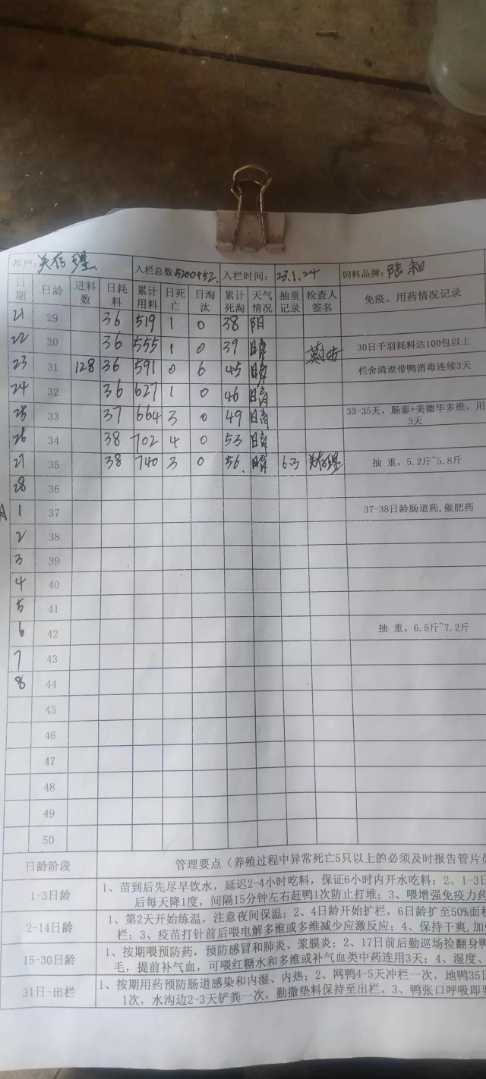 入栏总数 入栏时间：23.1.24 饲料品牌：
日期 日龄 进料数 日耗料 累计用料 日死亡 日淘汰 累计死淘 天气情况 抽重记录 检查人签名 免疫、用药情况记录
21 29 36 519 1 0 38 阴
22 30 36 555 1 0 39 晴 30日千羽耗料达100包以上
23 31 128 36 591 0 6 45 晴 栏舍清粪带鸭消毒连续3天
24 32 36 627 1 0 46 晴
25 33 37 664 3 0 49 晴 33-35天，肠泰+美德华多维，用3天
26 34 38 702 4 0 53 晴
27 35 38 740 3 0 56 晴 6.3 抽 重，5.2斤~5.8斤
28 36
1 37 37-38日龄肠道药,催肥药
2 38
3 39
4 40
5 41
6 42 抽 重，6.5斤~7.2斤
7 43
8 44
45
46
47
48
49
50
日龄阶段 管理要点（养殖过程中异常死亡5只以上的必须及时报告管片
1-3日龄 1、苗到后先尽早饮水，延迟2-4小时吃料，保证6小时内开水吃料；2、1-3日
后每天降1度，间隔15分钟左右赶鸭1次防止打堆；3、喂增强免疫力药
2-14日龄 1、第2天开始炼温，注意夜间保温；2、4日龄开始扩栏，6日龄扩至50%面积
栏；3、疫苗打针前后喂电解多维或多维减少应激反应；4、保持干爽，加
15-30日龄 1、按期喂预防药，预防感冒和肺炎、浆膜炎；2、17日前后勤巡场捡翻身鸭
毛，提前补气血，可喂红糖水和多维或补气血类中药连用3天；4、湿度、
31日-出栏 1、按期用药预防肠道感染和内湿、内热；2、网鸭4-5天冲栏一次，地鸭35日
1次，水沟边2-3天铲粪一次，勤撒垫料保持至出栏。3、鸭张口呼吸即